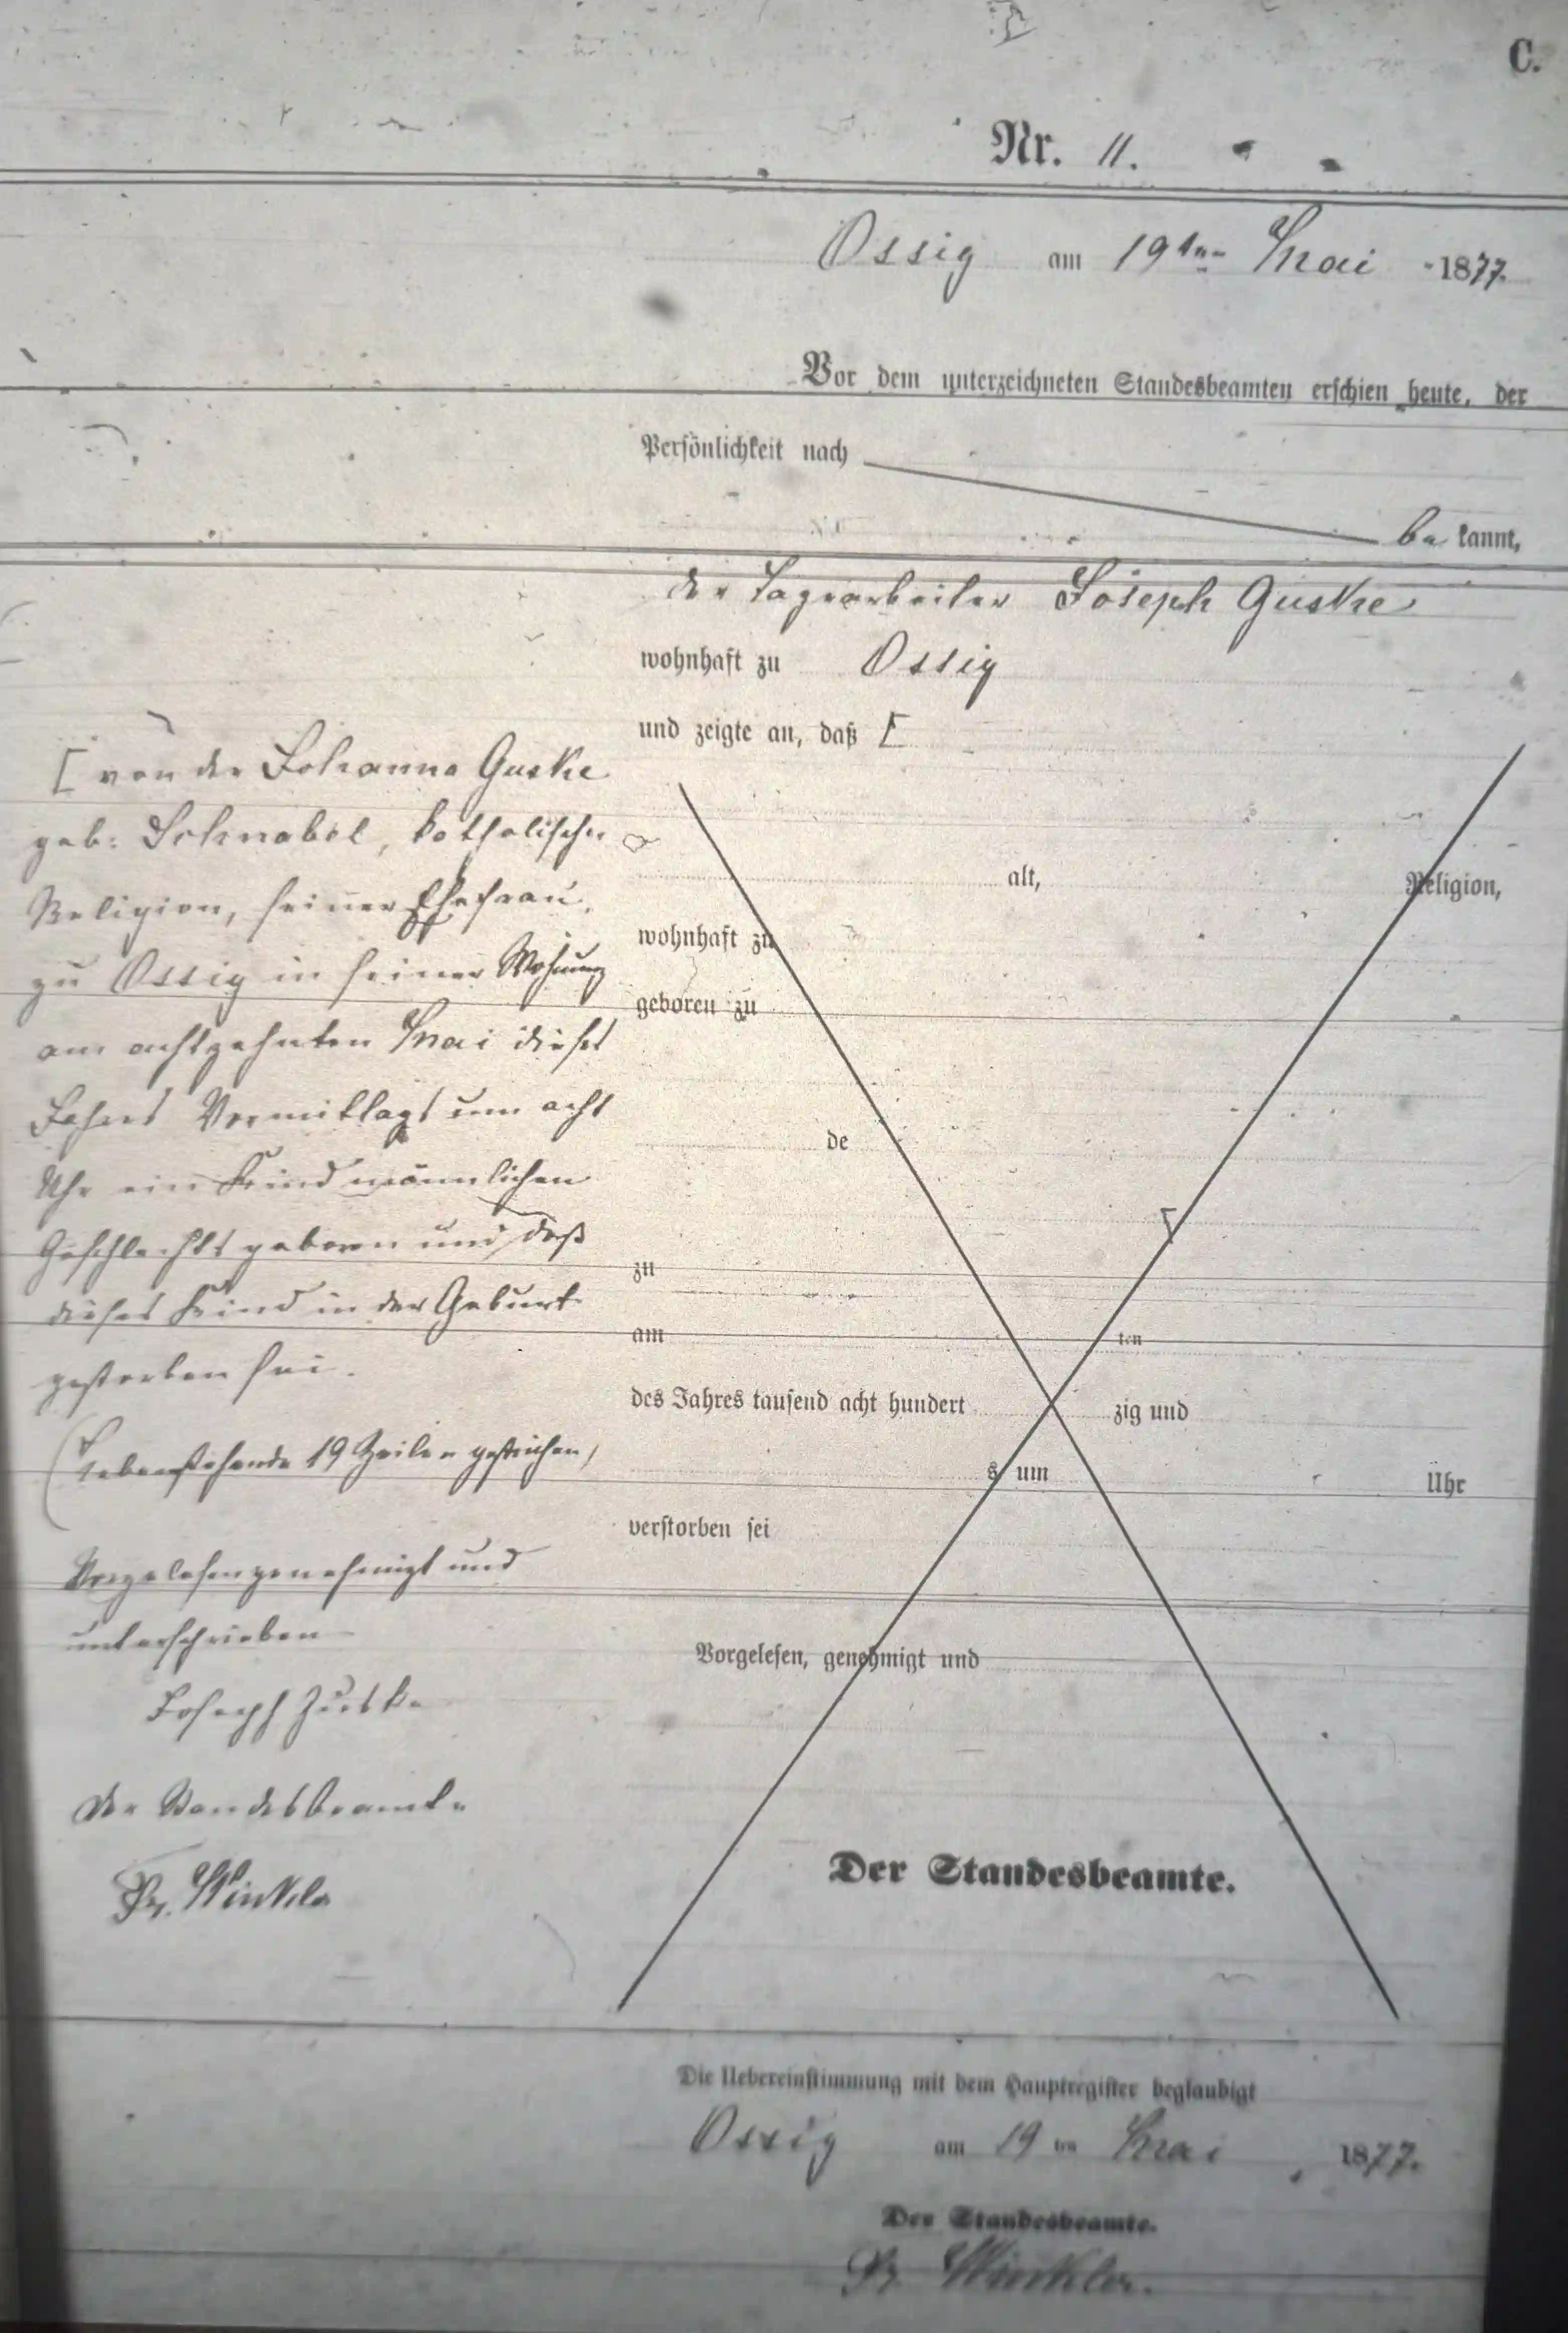 C.
Nr. 11.
Ossig am 19ten Mai 1877.
Vor dem unterzeichneten Standesbeamten erschien heute, der
Persönlichkeit nach
bekannt,
der Tagearbeiter Joseph Guske
wohnhaft zu Ossig
und zeigte an, daß [
[ von der Johanna Guske
geb: Schnabel, katholischer
Religion, seiner Ehefrau,
zu Ossig in seiner Wohnung
am achtzehnten Mai dieses
Jahres Vormittags um acht
Uhr ein Kind männlichen
Geschlechts geboren und daß
dieses Kind in der Geburt
gestorben sei.
(Nebenstehende 19 Zeilen gestrichen)
Vorgelesen genehmigt und
unterschrieben
Joseph Guske
Der Standesbeamte
Winkler
alt, Religion,
wohnhaft zu
geboren zu
de
zu
am ten
des Jahres tausend acht hundert zig und
s um Uhr
verstorben sei
Vorgelesen, genehmigt und
Der Standesbeamte.
Die Uebereinstimmung mit dem Hauptregister beglaubigt
Ossig am 19 ten Mai 1877.
Der Standesbeamte.
Winkler.